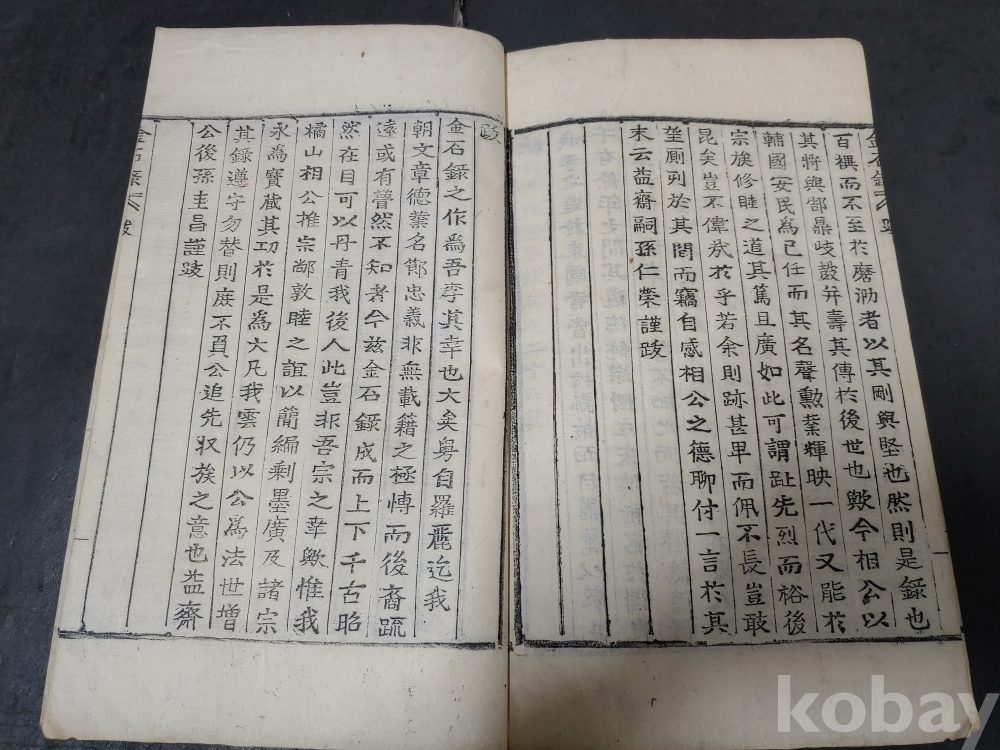 金石錄 跋
百襈而不至於磨泐者以其剛與堅也然則是錄也
其將與郜鼎歧鼓幷壽其傳於後世也歟今相公以
輔國安民為己任而其名聲勳業輝映一代又能於
宗族修睦之道其篤且廣如此可謂趾先烈而裕後
昆矣豈不偉哉於乎若余則跡甚卑而佩不長豈敢
望廁列於其間而竊自感相公之德聊付一言於其
末云益齋嗣孫仁榮謹跋
跋
金石錄之作為吾李其幸也大矣粤自羅麗迄我
朝文章德業名節忠義非無載籍之極博而後裔疏
遠或有瞢然不知者今玆金石錄成而上下千古昭
然在目可以丹青我後人此豈非吾宗之幸歟惟我
橘山相公推宗鄰敦睦之誼以蕳編剩墨廣及諸宗
永為寶藏其功於是為大凡我雲仍以公為法世增
其錄遵守勿替則庶不負公追先収族之意也益齋
公後孫圭昌謹跋
金石錄 跋
kobay